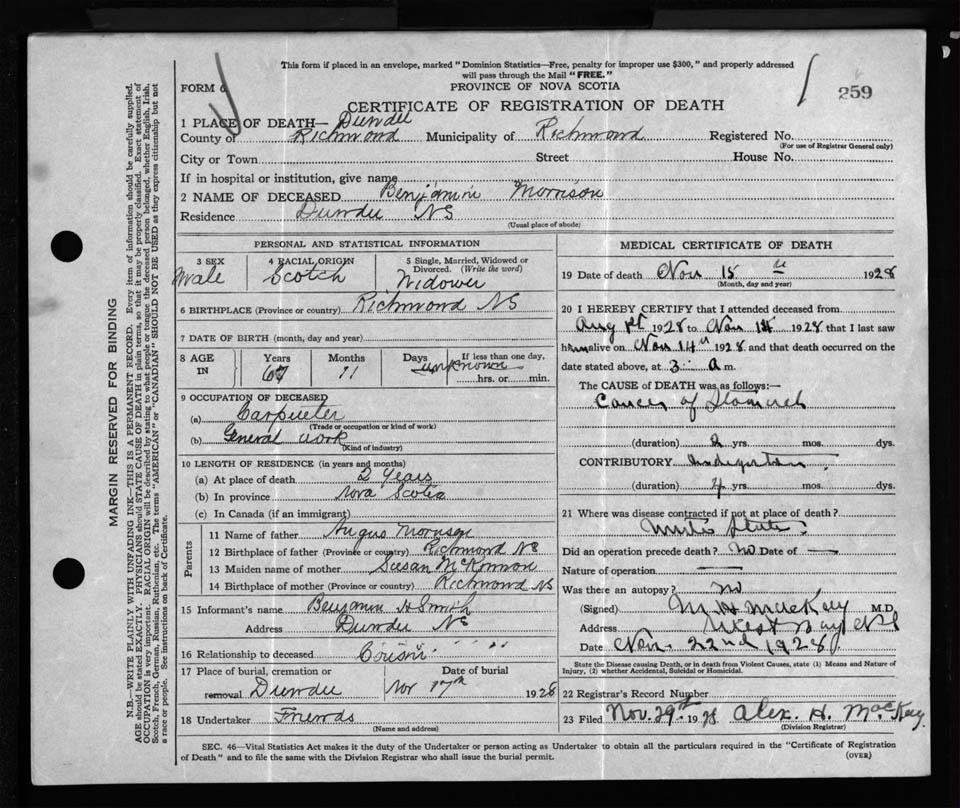 This form if placed in an envelope, marked "Dominion Statistics—Free, penalty for improper use $300," and properly addressed
will pass through the Mail "FREE."
FORM 6
PROVINCE OF NOVA SCOTIA
259
CERTIFICATE OF REGISTRATION OF DEATH
1 PLACE OF DEATH— Dundee
County of Richmond Municipality of Richmond Registered No.
(For use of Registrar General only)
City or Town Street House No.
If in hospital or institution, give name
2 NAME OF DECEASED Benjamin Morrison
Residence Dundee NS
(Usual place of abode)
PERSONAL AND STATISTICAL INFORMATION
3 SEX 4 RACIAL ORIGIN 5 Single, Married, Widowed or Divorced. (Write the word)
Male Scotch Widower
6 BIRTHPLACE (Province or country) Richmond NS
7 DATE OF BIRTH (month, day and year)
8 AGE IN Years Months Days If less than one day,
67 11 unknown hrs. or min.
9 OCCUPATION OF DECEASED
(a) Carpenter
(Trade or occupation or kind of work)
(b) General work
(Kind of industry)
10 LENGTH OF RESIDENCE (in years and months)
(a) At place of death 2 Years
(b) In province Nova Scotia
(c) In Canada (if an immigrant)
Parents
11 Name of father Angus Morrison
12 Birthplace of father (Province or country) Richmond NS
13 Maiden name of mother Susan McKinnon
14 Birthplace of mother (Province or country) Richmond NS
15 Informant's name Benjamin H Smith
Address Dundee NS
16 Relationship to deceased Cousin " " " "
17 Place of burial, cremation or removal Date of burial
Dundee Nov 17th 1928
18 Undertaker Friends
(Name and address)
MEDICAL CERTIFICATE OF DEATH
19 Date of death Nov 15 th 1928
(Month, day and year)
20 I HEREBY CERTIFY that I attended deceased from
Aug 1st 1928 to Nov 14 1928 that I last saw
him alive on Nov 14th 1928 and that death occurred on the
date stated above, at 3 a m.
The CAUSE OF DEATH was as follows:—
Cancer of Stomach
(duration) 2 yrs. mos. dys.
CONTRIBUTORY
(duration) 4 yrs. mos. dys.
21 Where was disease contracted if not at place of death?
United States
Did an operation precede death? No Date of —
Nature of operation —
Was there an autopsy? No
(Signed) M H MacKay M.D.
Address West Bay NS
Date Nov. 22nd 1928
State the Disease causing Death, or in death from Violent Causes, state (1) Means and Nature of
Injury, (2) whether Accidental, Suicidal or Homicidal.
22 Registrar's Record Number
23 Filed Nov. 29th 1928 Alex. H. MacKay.
(Division Registrar)
SEC. 46—Vital Statistics Act makes it the duty of the Undertaker or person acting as Undertaker to obtain all the particulars required in the "Certificate of Registration
of Death" and to file the same with the Division Registrar who shall issue the burial permit.
(OVER)
MARGIN RESERVED FOR BINDING
N.B.—WRITE PLAINLY WITH UNFADING INK—THIS IS A PERMANENT RECORD. Every item of information should be carefully supplied.
AGE should be stated EXACTLY. PHYSICIANS should STATE CAUSE OF DEATH in plain terms, so that it may be properly classified. Exact statement of
OCCUPATION is very important. RACIAL ORIGIN will be described by stating to what people or tongue the deceased person belonged, whether English, Irish,
Scotch, French, German, Russian, Ruthenian, etc. The terms "AMERICAN" or "CANADIAN" SHOULD NOT BE USED as they express citizenship but not
a race or people. See instructions on back of Certificate.